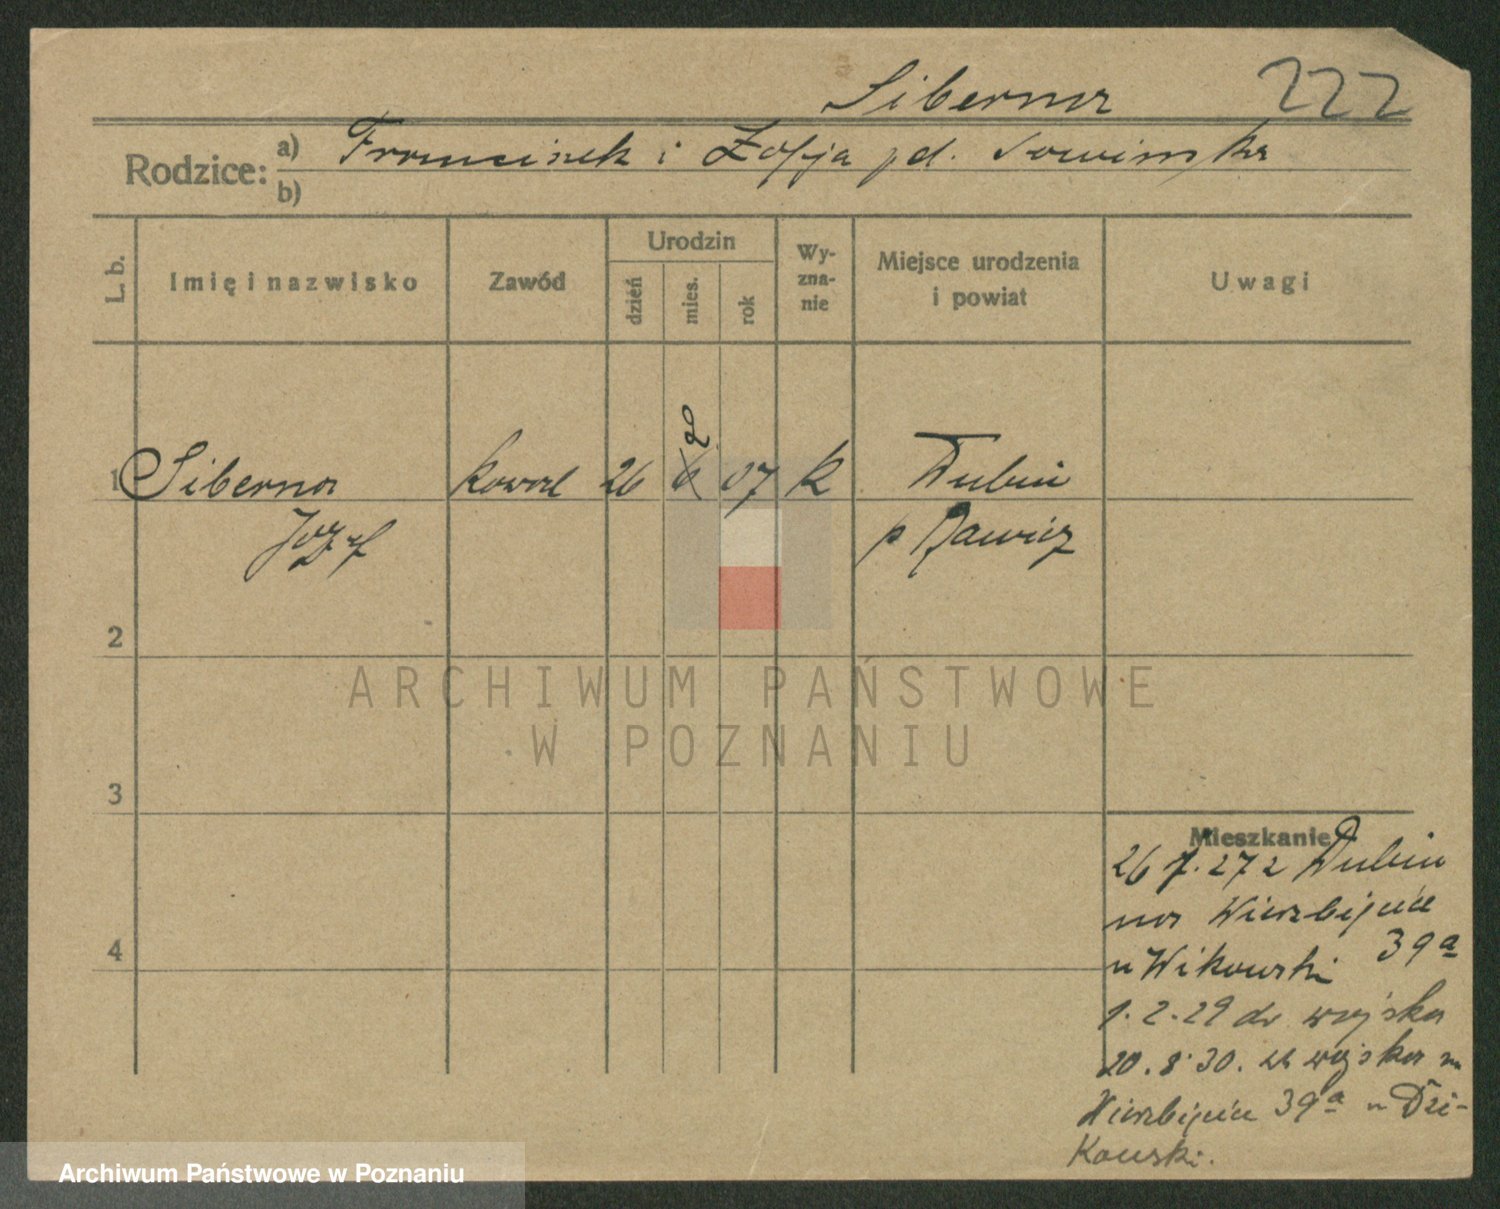 Siberna 222
Rodzice: a) Franciszek i Zofja pd. Sowińska
b)
L. b. Imię i nazwisko Zawód Urodzin dzień mies. rok Wy-zna-nie Miejsce urodzenia i powiat Uwagi
1 Siberna kowal 26 6 2 07 k Dubin
Józef p Rawicz
2
3
Mieszkanie
26 7. 27 z Dubin
na Wierzbięcice
39a
u Wikowski
4
1. 2. 29 do wojska
20. 8. 30. z wojska na
Wierzbięcice 39a u Dzi-
kowski.
ARCHIWUM PAŃSTWOWE
W POZNANIU
Archiwum Państwowe w Poznaniu